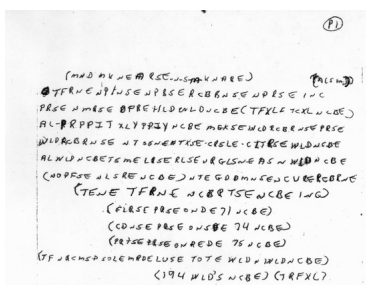 (P1)
(MND MKNEARSE-N-S-M-KNARE) (ACSM)
TFRNENPTNSENPBSERCBBNSENPRSEINC
PRSENMRSEOPREHLDWLDNCBE(TFXLFTCXLNCBE)
AL-PRPPITXLYPPIYNCBEMGKSEINCDRCBRNSEPRSE
WLDRCBRNSENTSSNENTXSE-CRSLE-CITRSEWLDNCBE
ALWLDNCBETSMELRSERLSEURGLSNEASNWLDNCBE
(NOPFSENLSRENCBE)NTEGDDMNSENCURERCBRNE
(TENETFRNENCBRTSENCBEING)
(FLRSEPRSEONDE71NCBE)
(CDNSEPRSEONSDE74NCBE)
(PRTSEPRSEONREDE75NCBE)
(TFNRCMSPSOLEMRDELUSETOTEWLDNWLDNCBE)
(194WLD'SNCBE)(TRFXL)